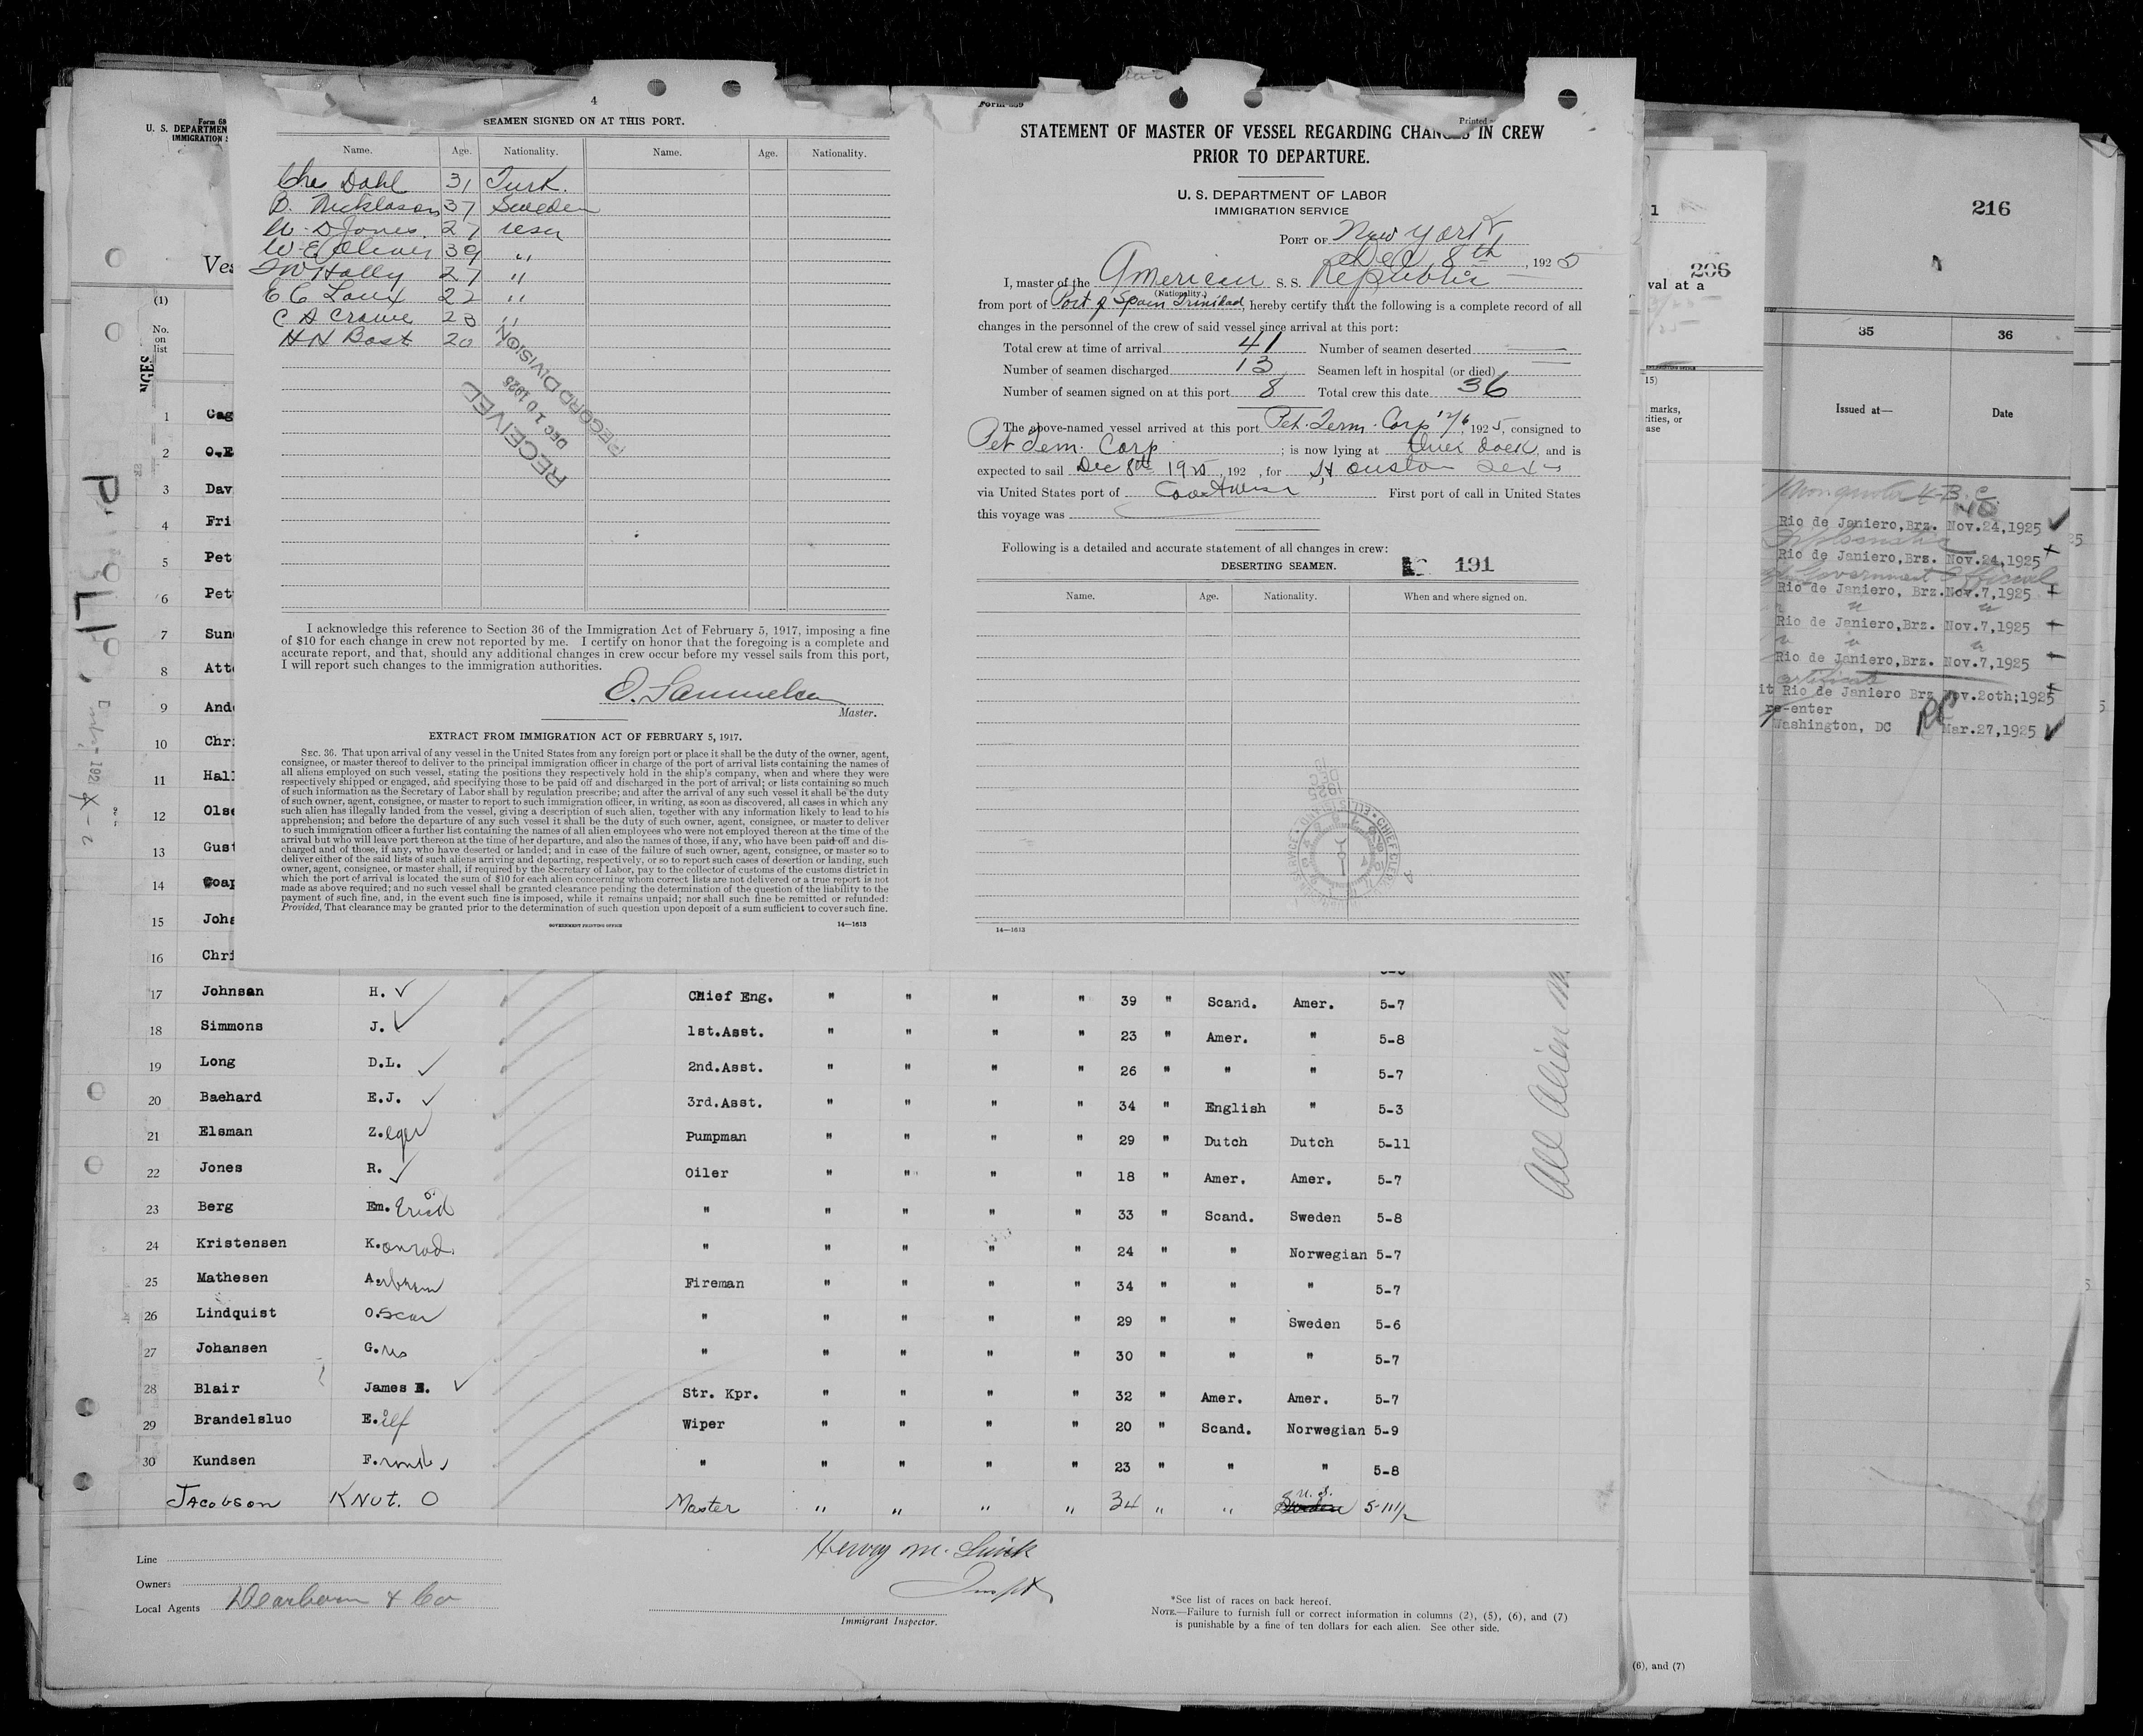 4
SEAMEN SIGNED ON AT THIS PORT.
Name. Age. Nationality. Name. Age. Nationality.
Chs Dahl 31 Turk.
B. Nicklason 37 Sweden
W. D Jones. 27 USA
W E Oliver 39 "
Holly 27 "
E C Laux 22 "
C A Crowe 23 "
H N Bost 20
RECEIVED
DEC 10 1925
RECORD DIVISION
I acknowledge this reference to Section 36 of the Immigration Act of February 5, 1917, imposing a fine
of $10 for each change in crew not reported by me. I certify on honor that the foregoing is a complete and
accurate report, and that, should any additional changes in crew occur before my vessel sails from this port,
I will report such changes to the immigration authorities.
O. Samuelsen
Master.
EXTRACT FROM IMMIGRATION ACT OF FEBRUARY 5, 1917.
SEC. 36. That upon arrival of any vessel in the United States from any foreign port or place it shall be the duty of the owner, agent,
consignee, or master thereof to deliver to the principal immigration officer in charge of the port of arrival lists containing the names of
all aliens employed on such vessel, stating the positions they respectively hold in the ship's company, when and where they were
respectively shipped or engaged, and specifying those to be paid off and discharged in the port of arrival; or lists containing so much
of such information as the Secretary of Labor shall by regulation prescribe; and after the arrival of any such vessel it shall be the duty
of such owner, agent, consignee, or master to report to such immigration officer, in writing, as soon as discovered, all cases in which any
such alien has illegally landed from the vessel, giving a description of such alien, together with any information likely to lead to his
apprehension; and before the departure of any such vessel it shall be the duty of such owner, agent, consignee, or master to deliver
to such immigration officer a further list containing the names of all alien employees who were not employed thereon at the time of the
arrival but who will leave port thereon at the time of her departure, and also the names of those, if any, who have been paid off and dis-
charged and of those, if any, who have deserted or landed; and in case of the failure of such owner, agent, consignee, or master so to
deliver either of the said lists of such aliens arriving and departing, respectively, or so to report such cases of desertion or landing, such
owner, agent, consignee, or master, shall, if required by the Secretary of Labor, pay to the collector of customs of the customs district in
which the port of arrival is located the sum of $10 for each alien concerning whom correct lists are not delivered or a true report is not
made as above required; and no such vessel shall be granted clearance pending the determination of the question of the liability to the
payment of such fine, and, in the event such fine is imposed, while it remains unpaid; nor shall such fine be remitted or refunded:
Provided, That clearance may be granted prior to the determination of such question upon deposit of a sum sufficient to cover such fine.
GOVERNMENT PRINTING OFFICE 14—1613
Printed
STATEMENT OF MASTER OF VESSEL REGARDING CHANGES IN CREW
PRIOR TO DEPARTURE.
U. S. DEPARTMENT OF LABOR
IMMIGRATION SERVICE
PORT OF New York
Dec 8th, 1925
I, master of the American S. S. Republic
(Nationality.)
from port of Port of Spain Trinidad, hereby certify that the following is a complete record of all
changes in the personnel of the crew of said vessel since arrival at this port:
Total crew at time of arrival 41 Number of seamen deserted
Number of seamen discharged 13 Seamen left in hospital (or died)
Number of seamen signed on at this port 8 Total crew this date 36
The above-named vessel arrived at this port Pet. Term. Corp 12/6, 1925, consigned to
Pet Term. Corp ; is now lying at Dock, and is
expected to sail Dec 8th 1925, 192 , for Houston Texas
via United States port of Coastwise First port of call in United States
this voyage was
Following is a detailed and accurate statement of all changes in crew:
DESERTING SEAMEN. 191
Name. Age. Nationality. When and where signed on.
14—1613
U. S. DEPARTMEN
IMMIGRATION S
Ves
(1)
No.
on
list
1 Cag
2 O.E
3 Dav
4 Fri
5 Pet
6 Pet
7 Sun
8 Att
9 And
10 Chr
11 Hal
12 Ols
13 Gust
14 Soap
15 Joha
16 Chri
17 Johnsan H. Chief Eng. " " " " 39 " Scand. Amer. 5-7
18 Simmons J. 1st.Asst. " " " " 23 " Amer. " 5-8
19 Long D.L. 2nd.Asst. " " " " 26 " " " 5-7
20 Baehard E.J. 3rd.Asst. " " " " 34 " English " 5-3
21 Elsman Z.eger Pumpman " " " " 29 " Dutch Dutch 5-11
22 Jones R. Oiler " " " " 18 " Amer. Amer. 5-7
23 Berg Em. Erick " " " " " 33 " Scand. Sweden 5-8
24 Kristensen K.onrad. " " " " " 24 " " Norwegian 5-7
25 Mathesen A.brham Fireman " " " " 34 " " " 5-7
26 Lindquist O.scar " " " " " 29 " " Sweden 5-6
27 Johansen G.us " " " " " 30 " " " 5-7
28 Blair James E. Str. Kpr. " " " " 32 " Amer. Amer. 5-7
29 Brandelsluo E.ilf Wiper " " " " 20 " Scand. Norwegian 5-9
30 Kundsen F. " " " " " 23 " " " 5-8
Jacobson Knut. O Master " " " " 34 " " U.S. 5-11½
All Alien
Line
Owners
Local Agents Dearborn & Co
Immigrant Inspector.
*See list of races on back hereof.
NOTE.—Failure to furnish full or correct information in columns (2), (5), (6), and (7)
is punishable by a fine of ten dollars for each alien. See other side.
(6), and (7)
1
206
val at a
15)
marks,
ities, or
ase
216
35 36
Issued at— Date
Rio de Janiero,Brz. Nov.24,1925
Rio de Janiero,Brz. Nov.24,1925
Government Official
Rio de Janiero, Brz. Nov.7,1925
Rio de Janiero,Brz. Nov.7,1925
Rio de Janiero,Brz. Nov.7,1925
it Rio de Janiero Brz Nov.20th;1925
re-enter
Washington, DC Mar.27,1925